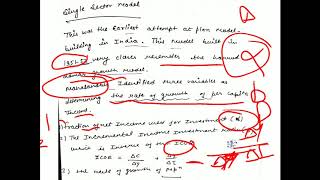 Single Sector Model
This was the Earliest attempt at plan model-
building in India. This model built in
1951-52 very closer resembles the harrod
domar growth model.
Mahalanobis Identified three variables as
determining the rate of growth of per capita
Income.
fraction of net Income uses for Investment (α)
2) The Incremental Income Investment
which is Inverse of the ICOR
ICOR = ΔC/ΔY
2) The rate of growth of popn